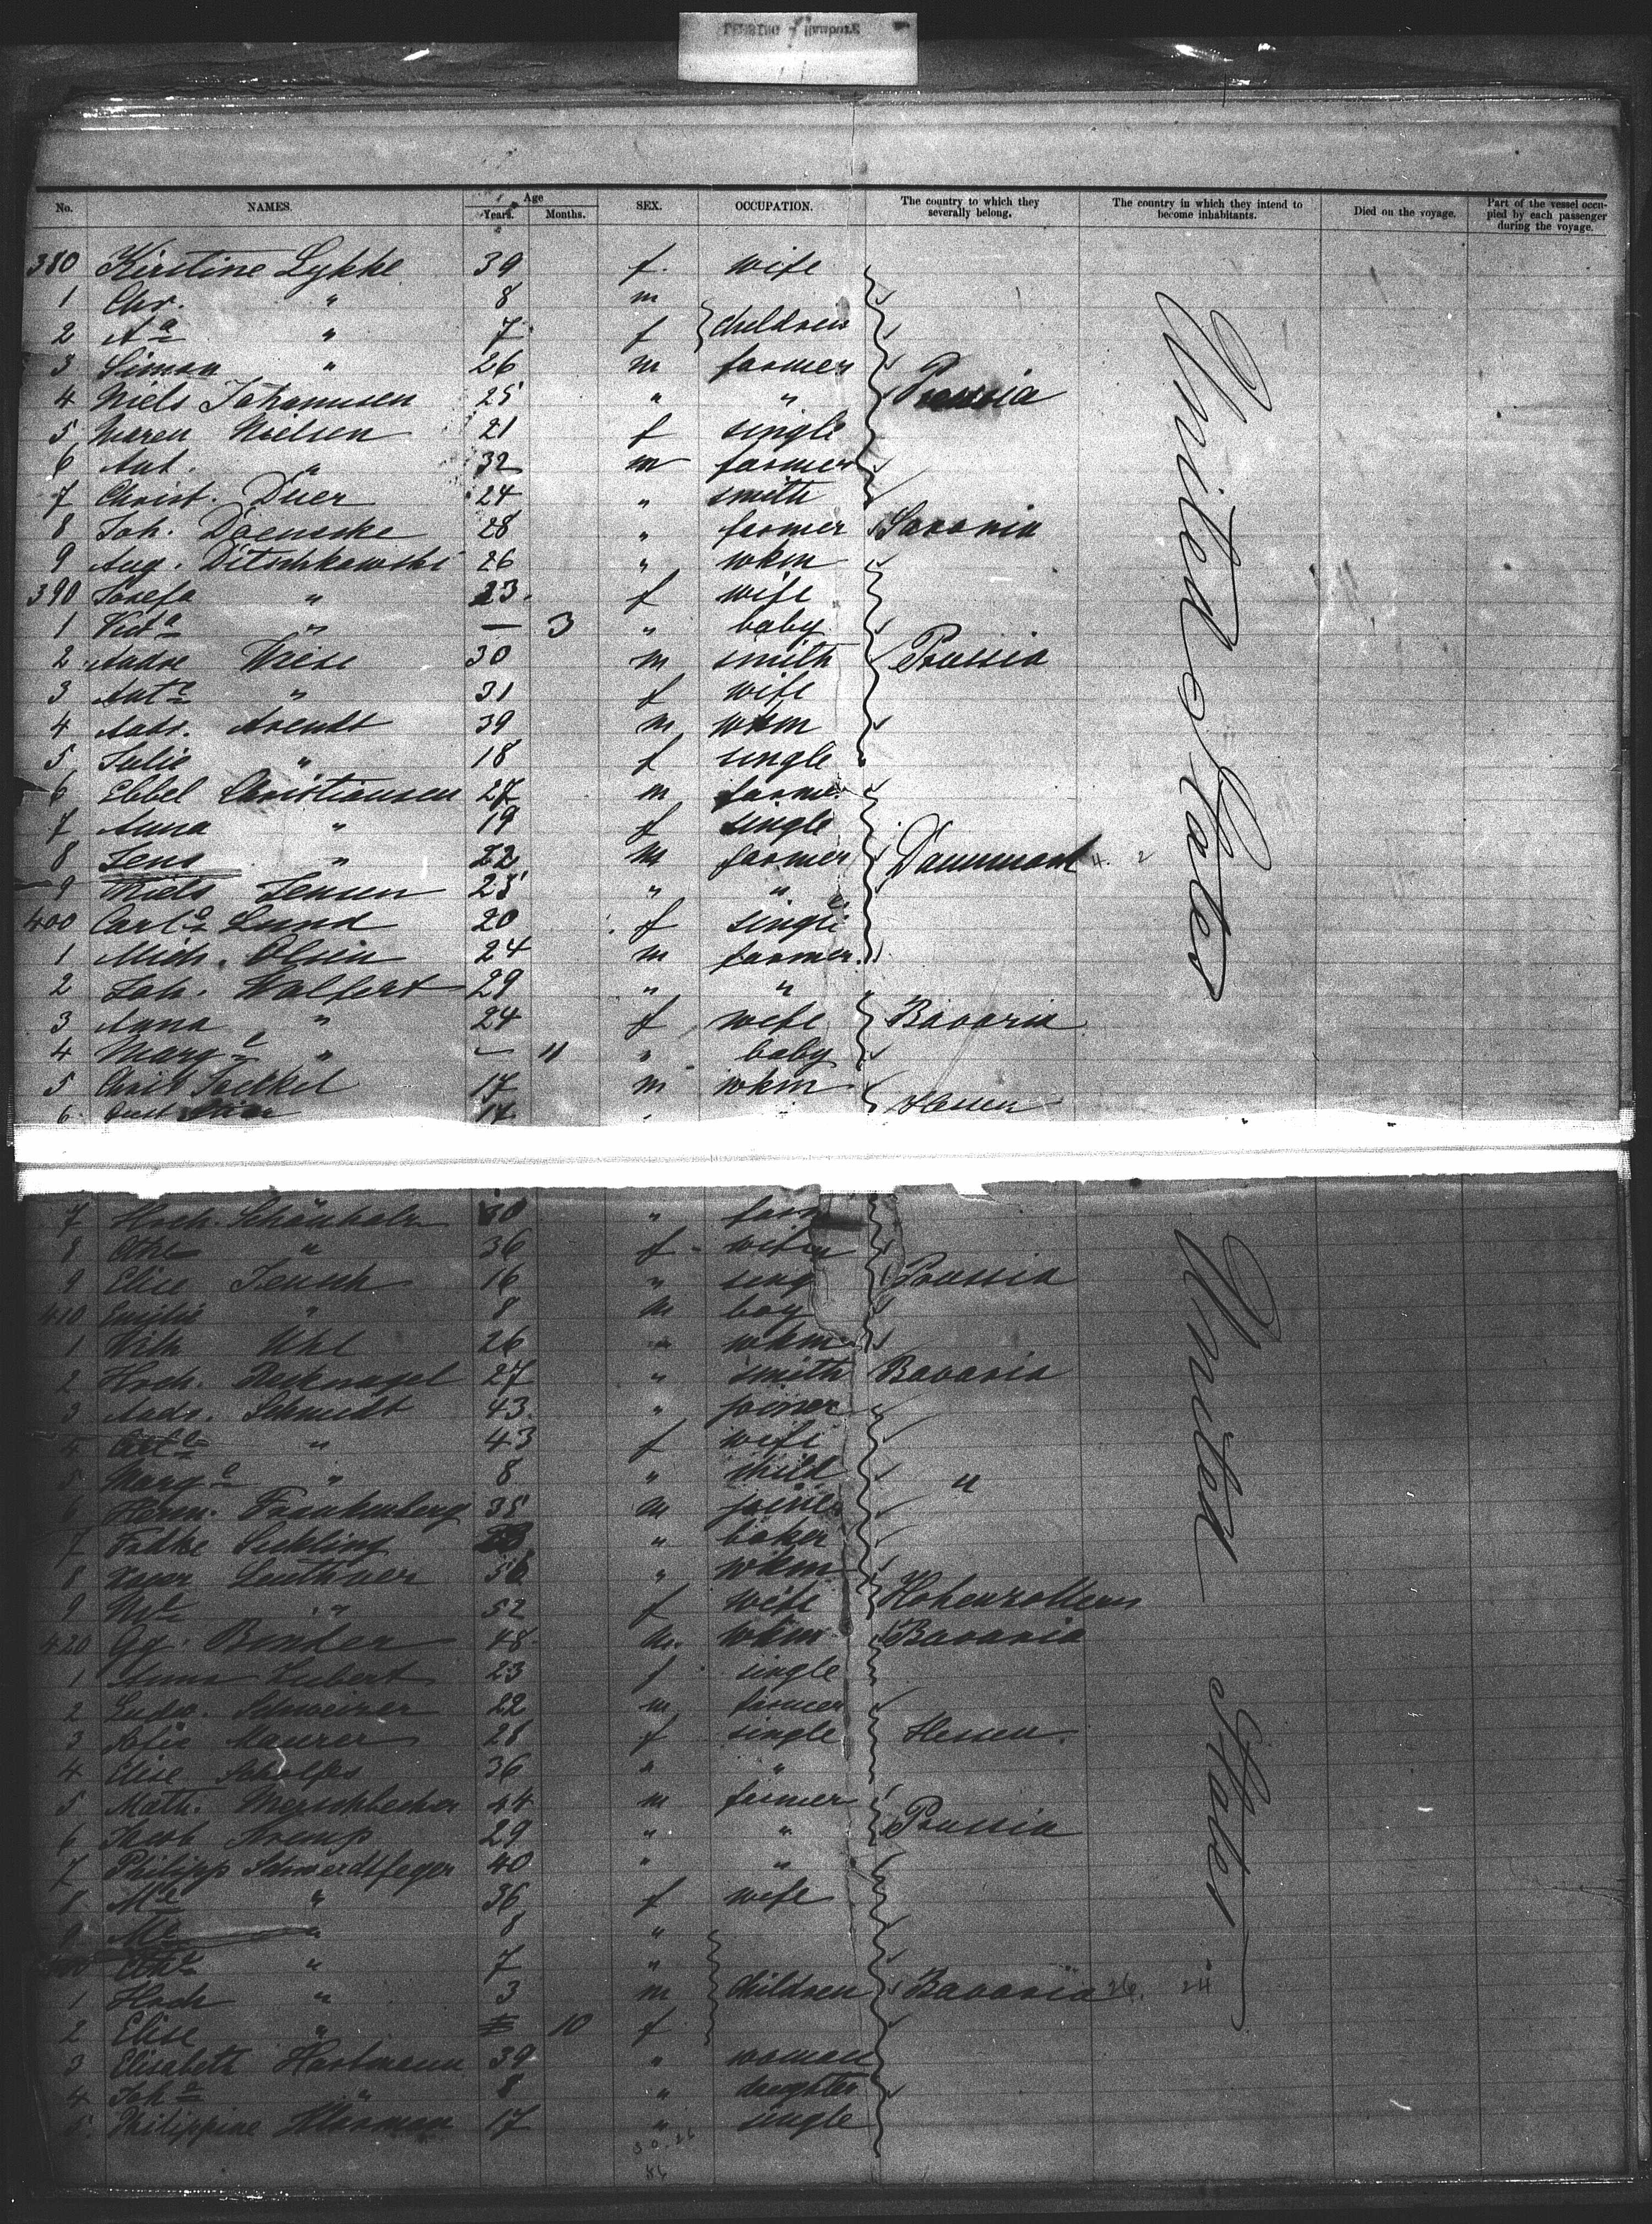 No. NAMES. Age Years. Months. SEX. OCCUPATION. The country to which they severally belong. The country in which they intend to become inhabitants. Died on the voyage. Part of the vessel occupied by each passenger during the voyage.
380 Kirstine Lykke 39 f. wife
1 Chr. " 8 m
2 Aª " 7 f children
3 Simon " 26 m farmer
4 Niels Johannsen 25 " " Prussia
5 Maren Nielsen 21 f single
6 Ant. " 32 m farmer
7 Christ. Duer 24 " smith
8 Joh. Daenecke 28 " farmer Saxonia
9 Aug. Ditschkowski 26 " wkm
390 Josefa " 23 f wife
1 Victª " — 3 " baby
2 Andre Wiese 30 m smith Prussia
3 Antᵉ " 31 f wife
4 Andr. Arendt 39 m wkm
5 Julie " 18 f single
6 Ebbel Christiansen 27 m farmer
7 Anna " 19 f single
8 Jens " 22 m farmer Dannmark 4. 2
9 Niels Jensen 25 " "
400 Carlᵉ Lund 20 f single
1 Mich. Olsen 24 m farmer
2 Joh. Walfert 29 " "
3 Anna " 24 f wife Bavaria
4 Margᵉ " — 11 " baby
5 Christ Jaeckel 17 m wkm
6 Gust 17 Hessen
United States
7 Hrch. Schönhals 30 " farm
8 Cath " 36 f wife
9 Elise Jensch 16 " sing Prussia
410 Emilie " 8 m boy
1 Wilh Uhl 26 " wkm
2 Hrch. Rucknagel 27 " smith Bavaria
3 Andr. Schmidt 43 " joiner
4 Cathᵉ " 43 f wife
5 Margᵉ " 8 " child "
6 Herm. Frankenberg 35 m joiner
7 Fritke Seckling " baker
8 Xaver Leuthner 56 " wkm
9 Mᵉ " 52 f wife Hohenzollern
420 Gg. Binder 48 m. wkm Bavaria
1 Anna Hubert 23 f single
2 Ludw. Schweizer 22 m farmer
3 Sofie Maurer 28 f single Hessen.
4 Elise Scholfs 36 " "
5 Math. Merschbecher 44 m farmer
6 Jacob Kremp 29 " " Prussia
7 Philipp Schwerdtfeger 40 " "
8 Mᵉ " 36 f wife
9 Mᵉ " 8 "
Cathᵉ " 7 "
1 Hrch " 3 m children Bavaria 26. 24
2 Elise " 10 f
3 Elisabeth Hartmann 39 " woman
4 Johª " 8 " daughter
5. Philippine 17 " single
United States